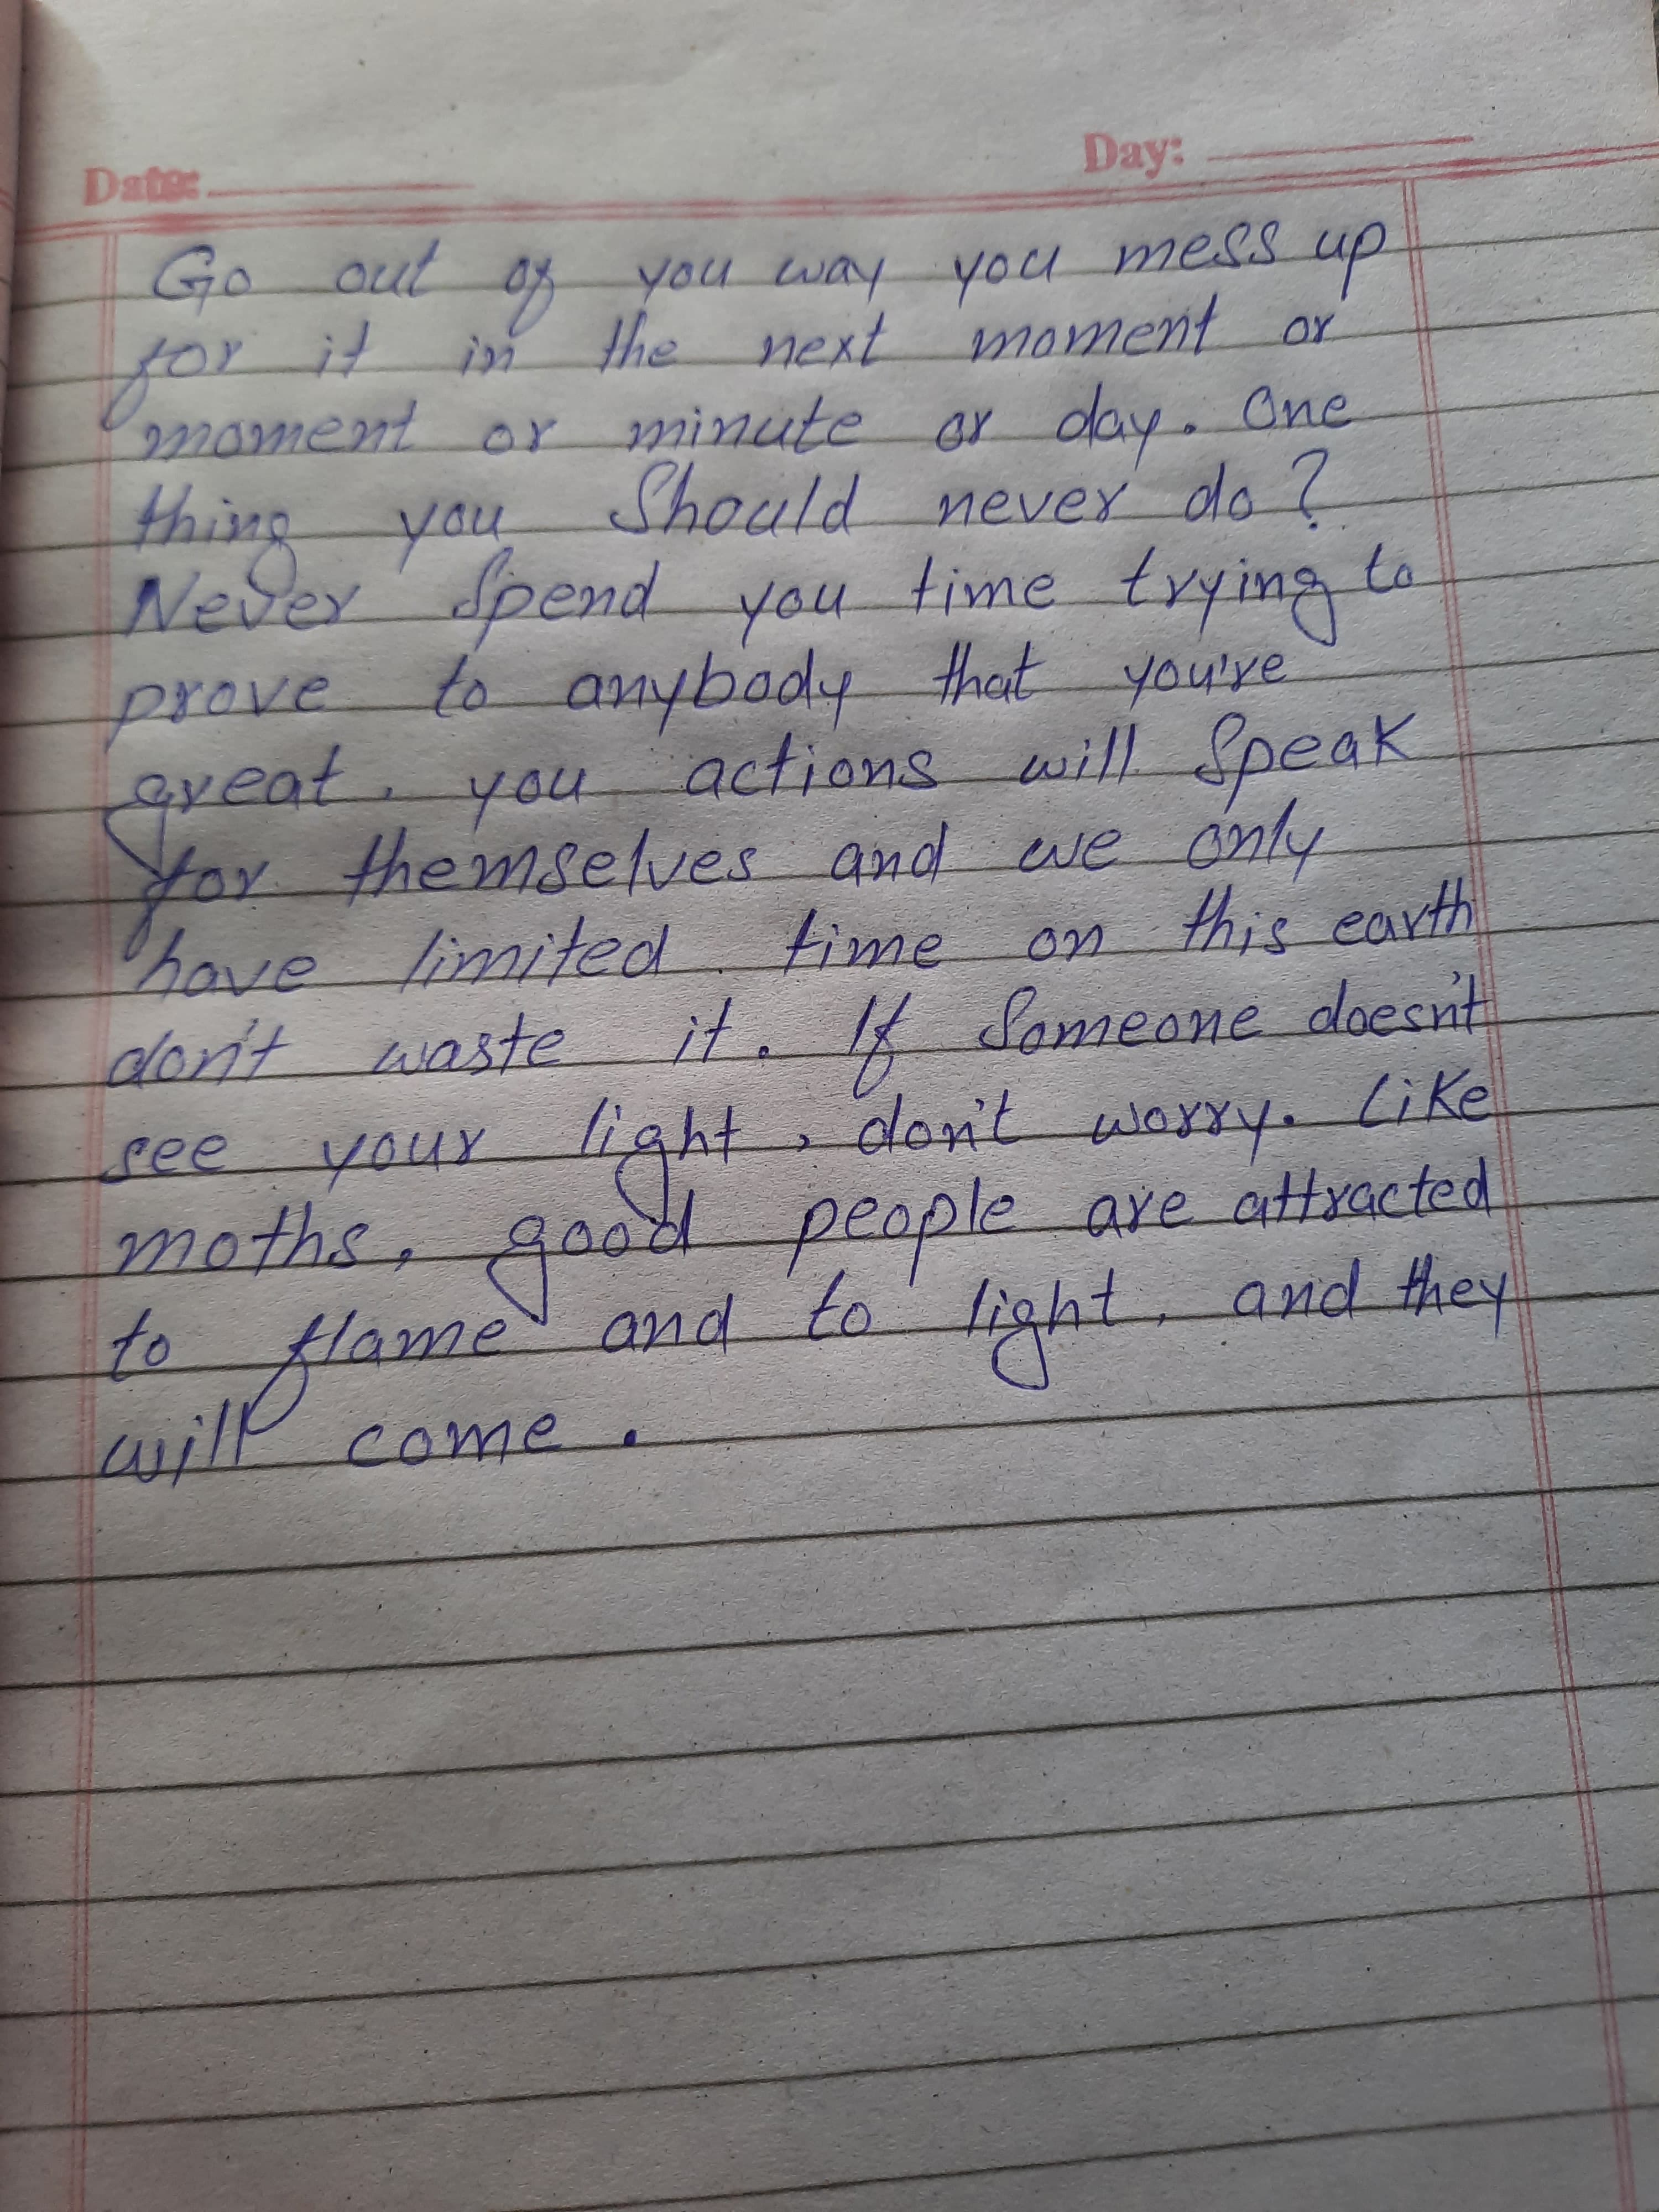 Date:
Day:
Go out of you way you mess up
for it in the next moment or
moment or minute or day. One
thing you Should never do?
Never Spend you time trying to
prove to anybody that you're
great. you actions will Speak
for themselves and we only
have limited time on this earth
don't waste it. If Someone doesn't
see your light, don't worry. Like
moths, good people are attracted
to flame and to light. and they
will come.